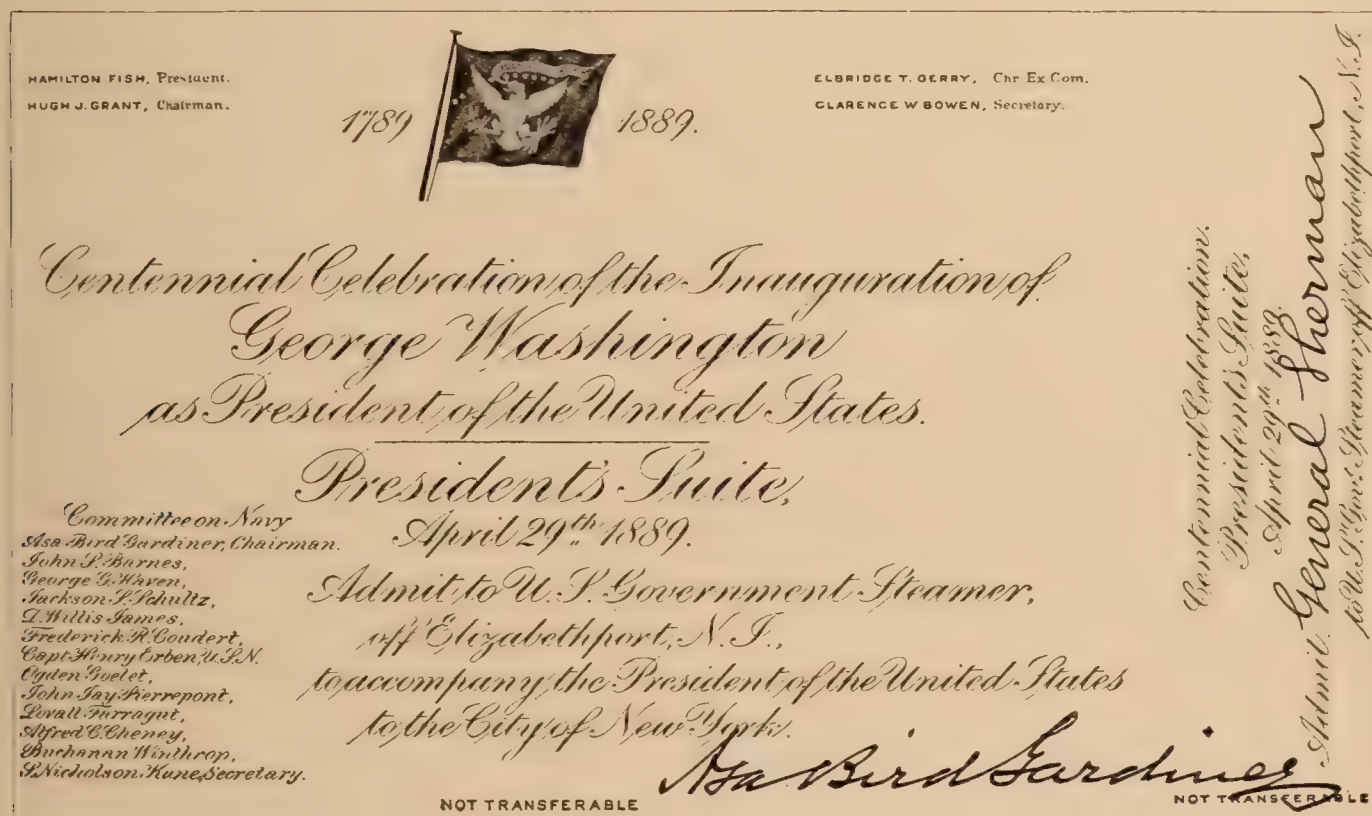 HAMILTON FISH, President.
HUGH J. GRANT, Chairman.
1789 1889.
ELBRIDGE T. GERRY, Chr Ex Com.
CLARENCE W BOWEN, Secretary.
Centennial Celebration of the Inauguration of
George Washington
as President of the United States.
President's Suite,
April 29th 1889.
Committee on Navy
Asa Bird Gardiner, Chairman.
John S. Barnes,
George G. Haven,
Jackson S. Schultz,
D. Willis James,
Frederick R. Coudert,
Capt. Henry Erben, U.S.N.
Ogden Goelet,
John Jay Pierrepont,
Loyall Farragut,
Alfred C. Cheney,
Buchanan Winthrop,
S. Nicholson Kane, Secretary.
Admit to U.S. Government Steamer,
off Elizabethport, N.J.,
to accompany the President of the United States
to the City of New York.
Asa Bird Gardiner
NOT TRANSFERABLE
Centennial Celebration.
President's Suite,
April 29th 1889.
Admit General Sherman
to U.S. Govt. Steamer off Elizabethport, N.J.
NOT TRANSFERABLE